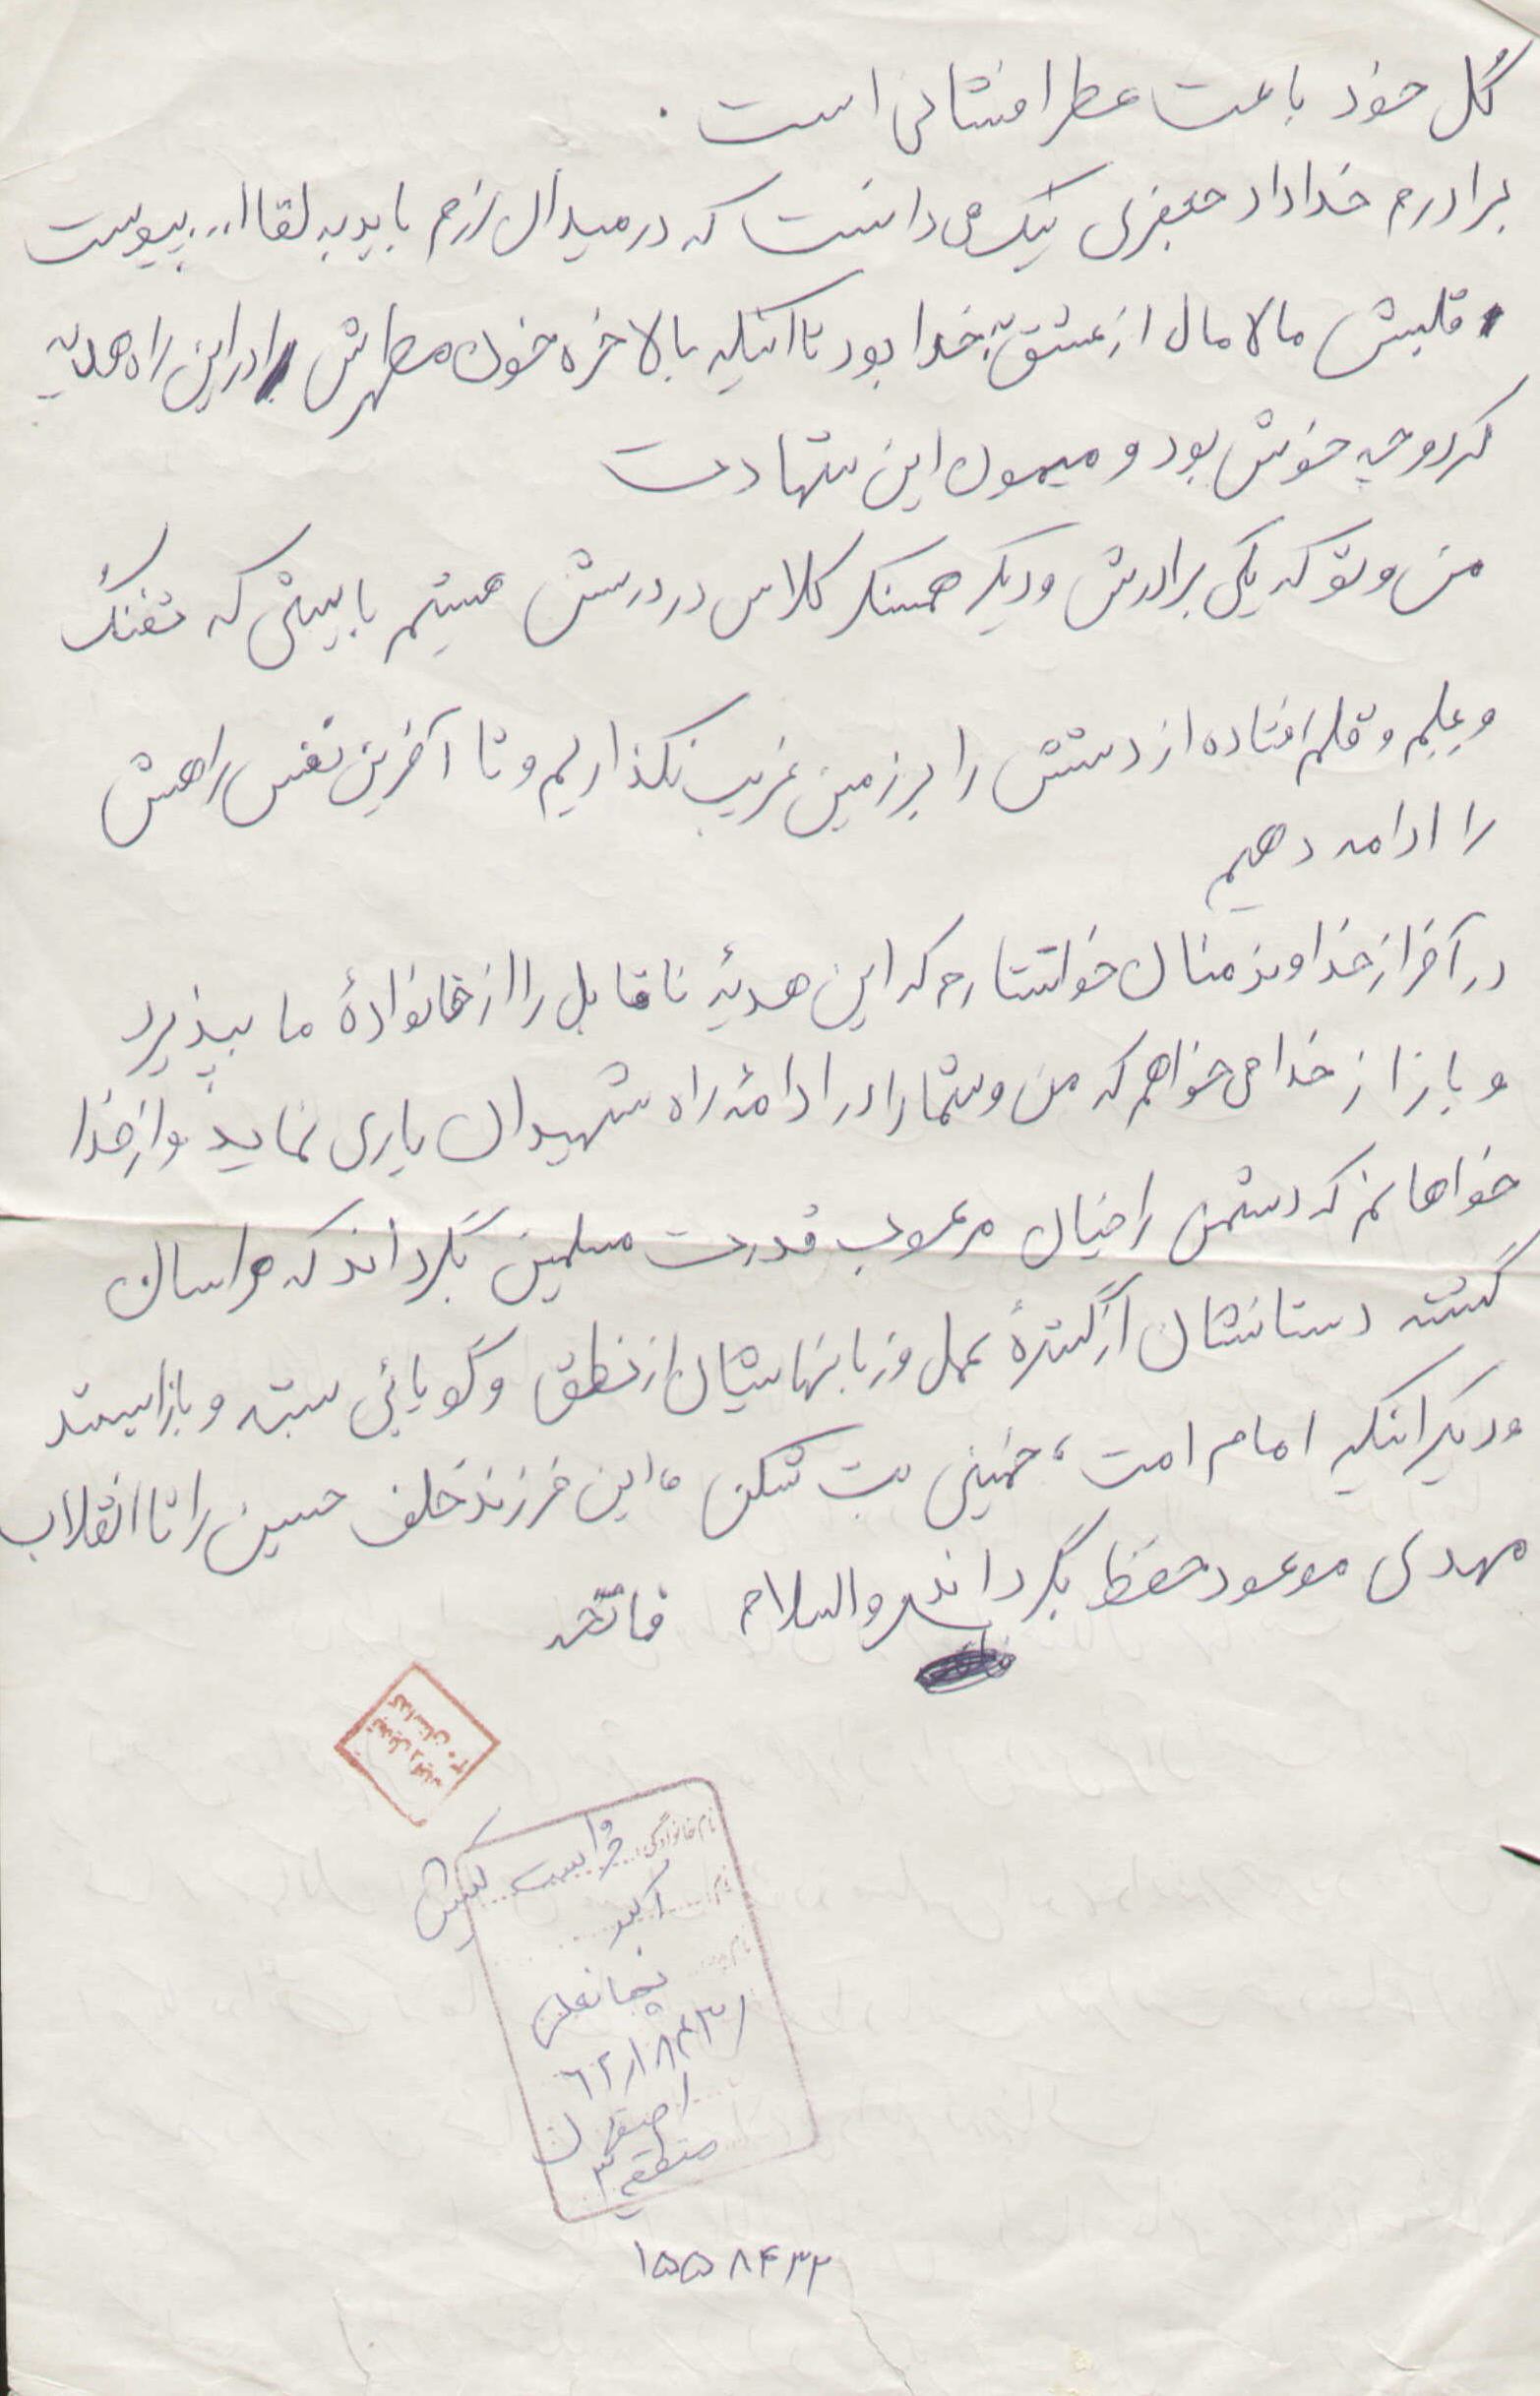 گل خود باعت عطر افشانی است .
برادرم خداداد جعفری نیک می دانست که در میدان رزم باید به لقاا... بپیوست
قلبش مالامال از عشق به خدا بود تا اینکه بالاخره خون مطهرش را در این راه هدیه
کرد و چه خوش بود و میمون این شهادت
من و تو که یکی برادرش و دیگر همسنگر کلاس در درسش هستیم بایستی که تفنگ
و علم و قلم افتاده از دستش را بر زمین غریب نگذاریم و تا آخرین نفس راهش
را ادامه دهیم
در آخر از خداوند منان خواستارم که این هدیهٔ ناقابل را از خانوادهٔ ما بپذیرد
و باز از خدا می خواهم که من و شما را در ادامهٔ راه شهیدان یاری نماید و از خدا
خواهانم که دشمن را خیال مرعوب قدرت مسلمین بگرداند که هراسان
گشته دستانشان از گسترهٔ عمل و زبانهایشان از نطق و گویائی بسته و باز ایستد
و دیگر اینکه امام امت ، خمینی بت شکن ، این فرزند خلف حسین را تا انقلاب
مهدی موعود حفظ بگرداند والسلام فاتحه
نام خانوادگی:
نام: اکبر
نام پدر
اصفهان
منطقه ۳
۱۵۵۸۴۳۲